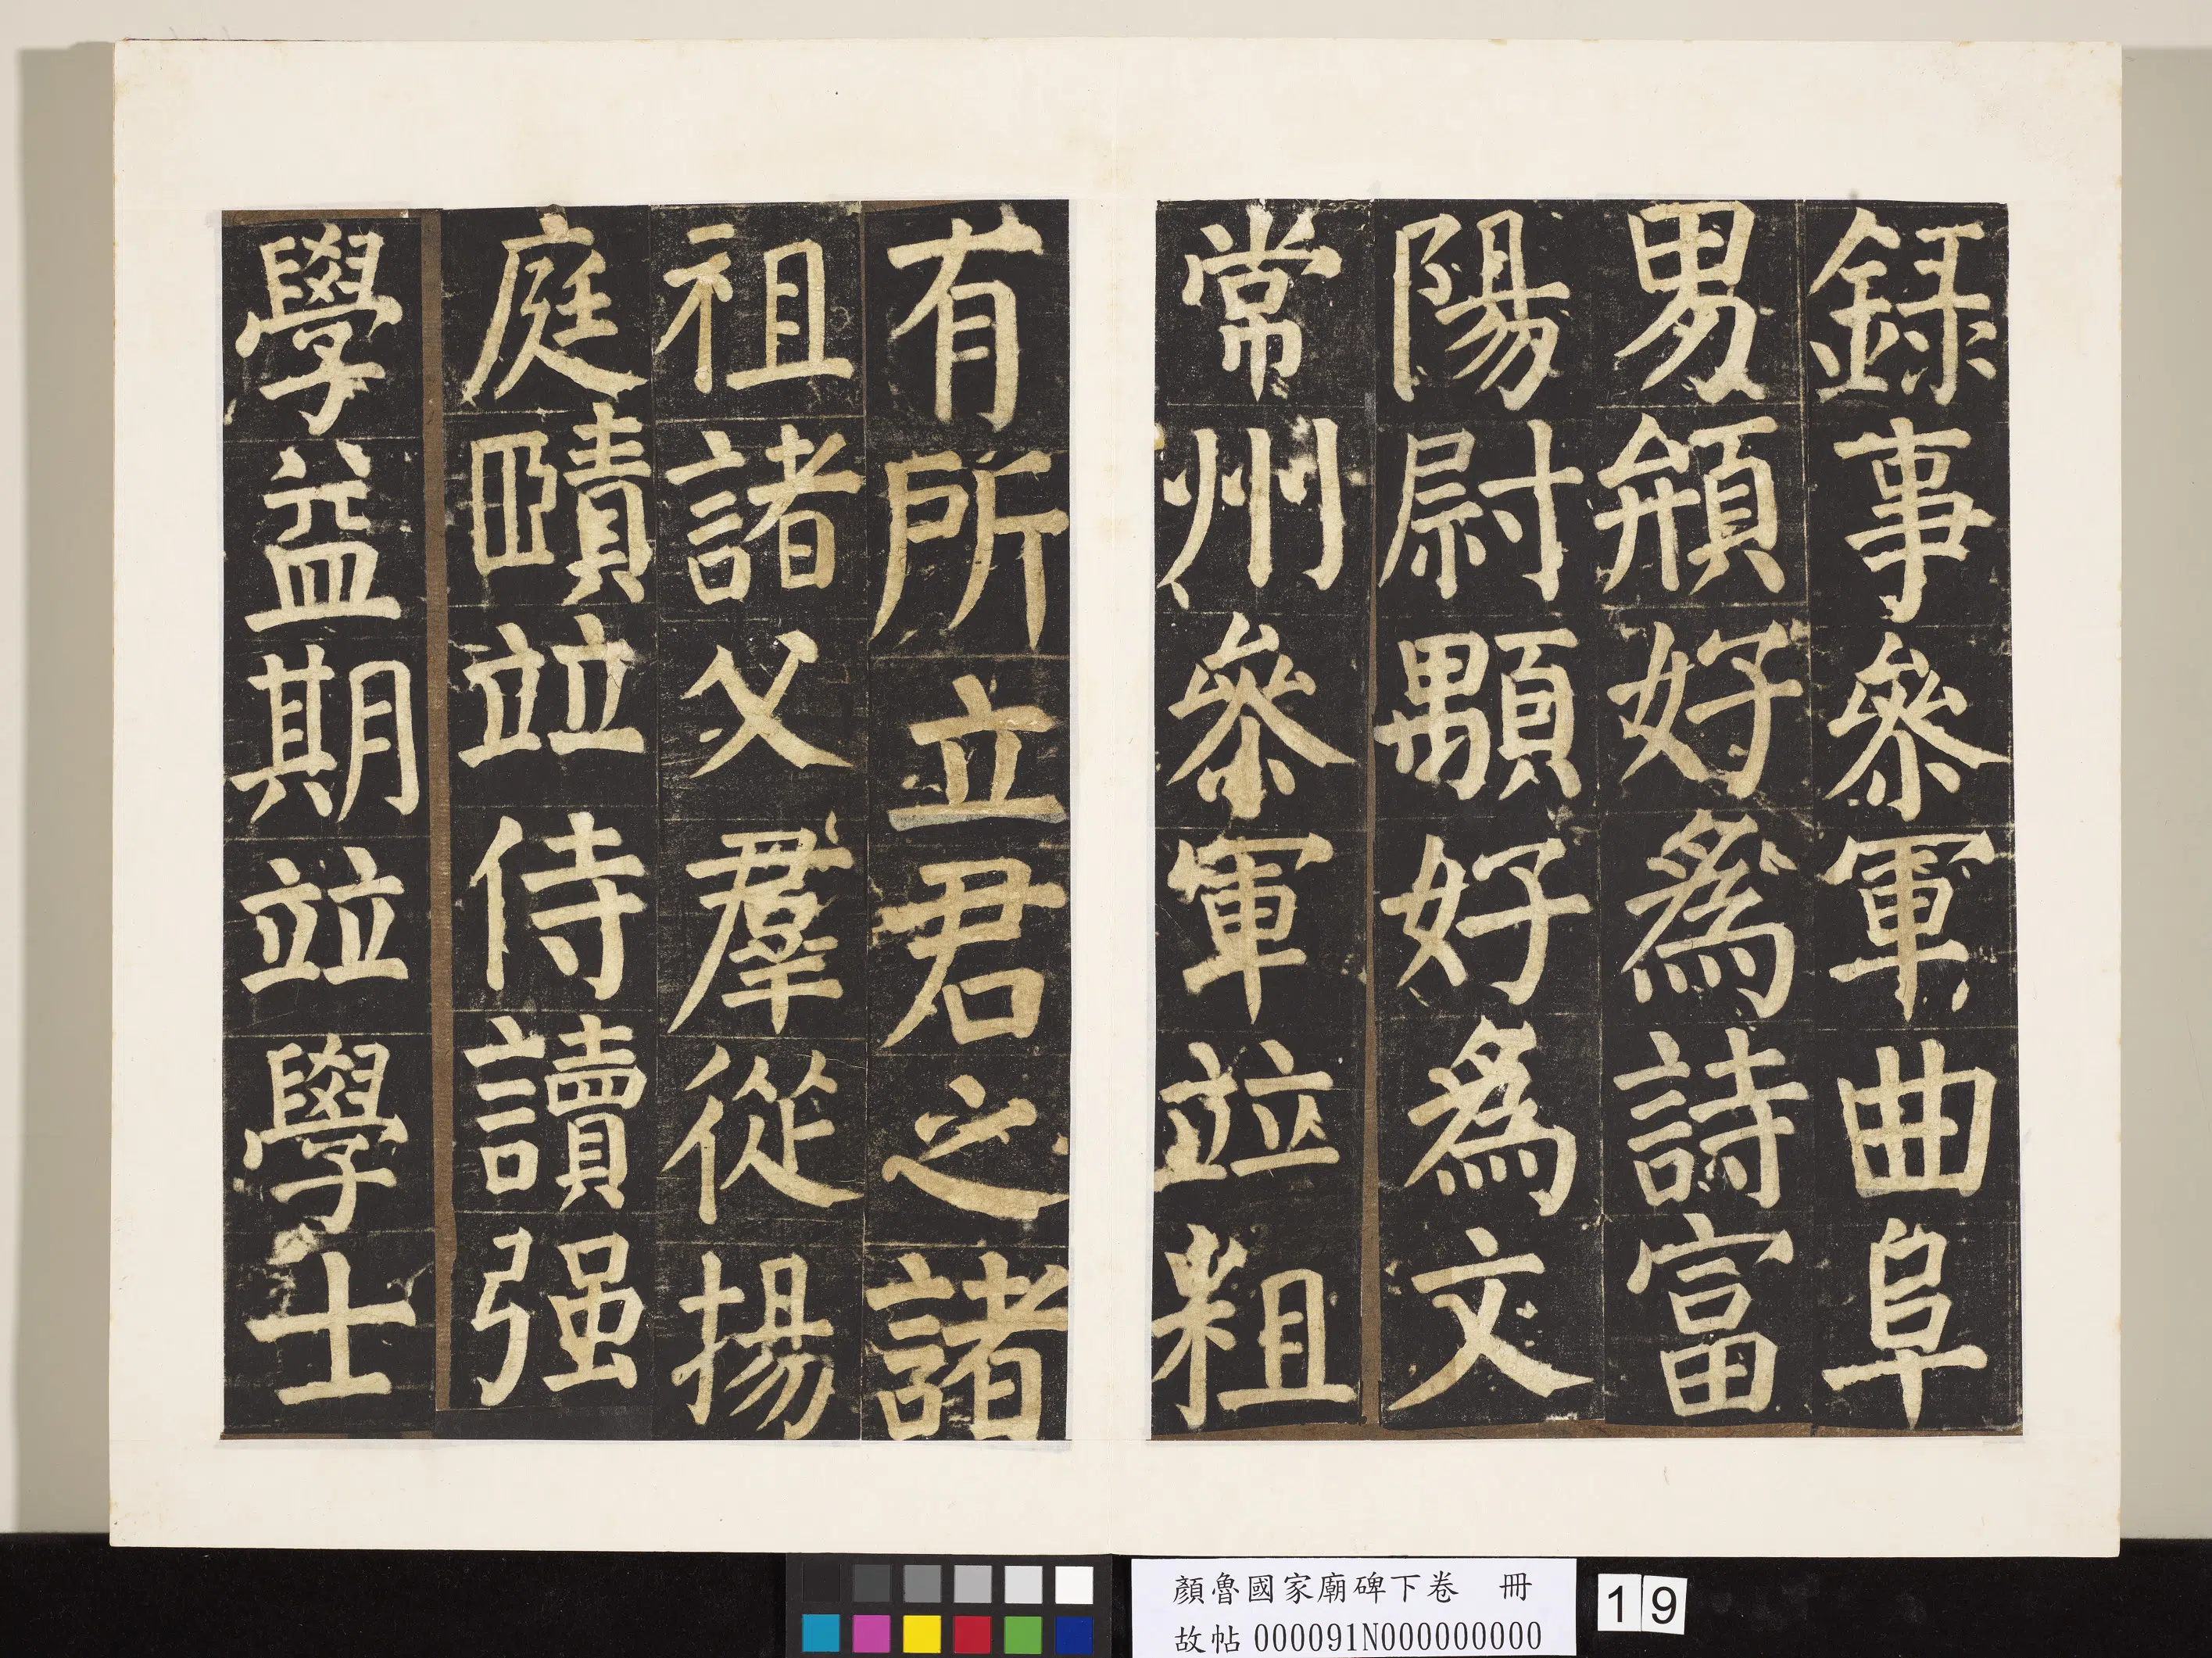 録事叅軍曲阜
男頩好爲詩富
陽尉顒好爲文
常州叅軍竝粗
有所立君之諸
祖諸父羣從揚
庭賾竝侍讀强
學益期竝學士
顏魯國家廟碑下卷 冊
故帖000091N000000000
19